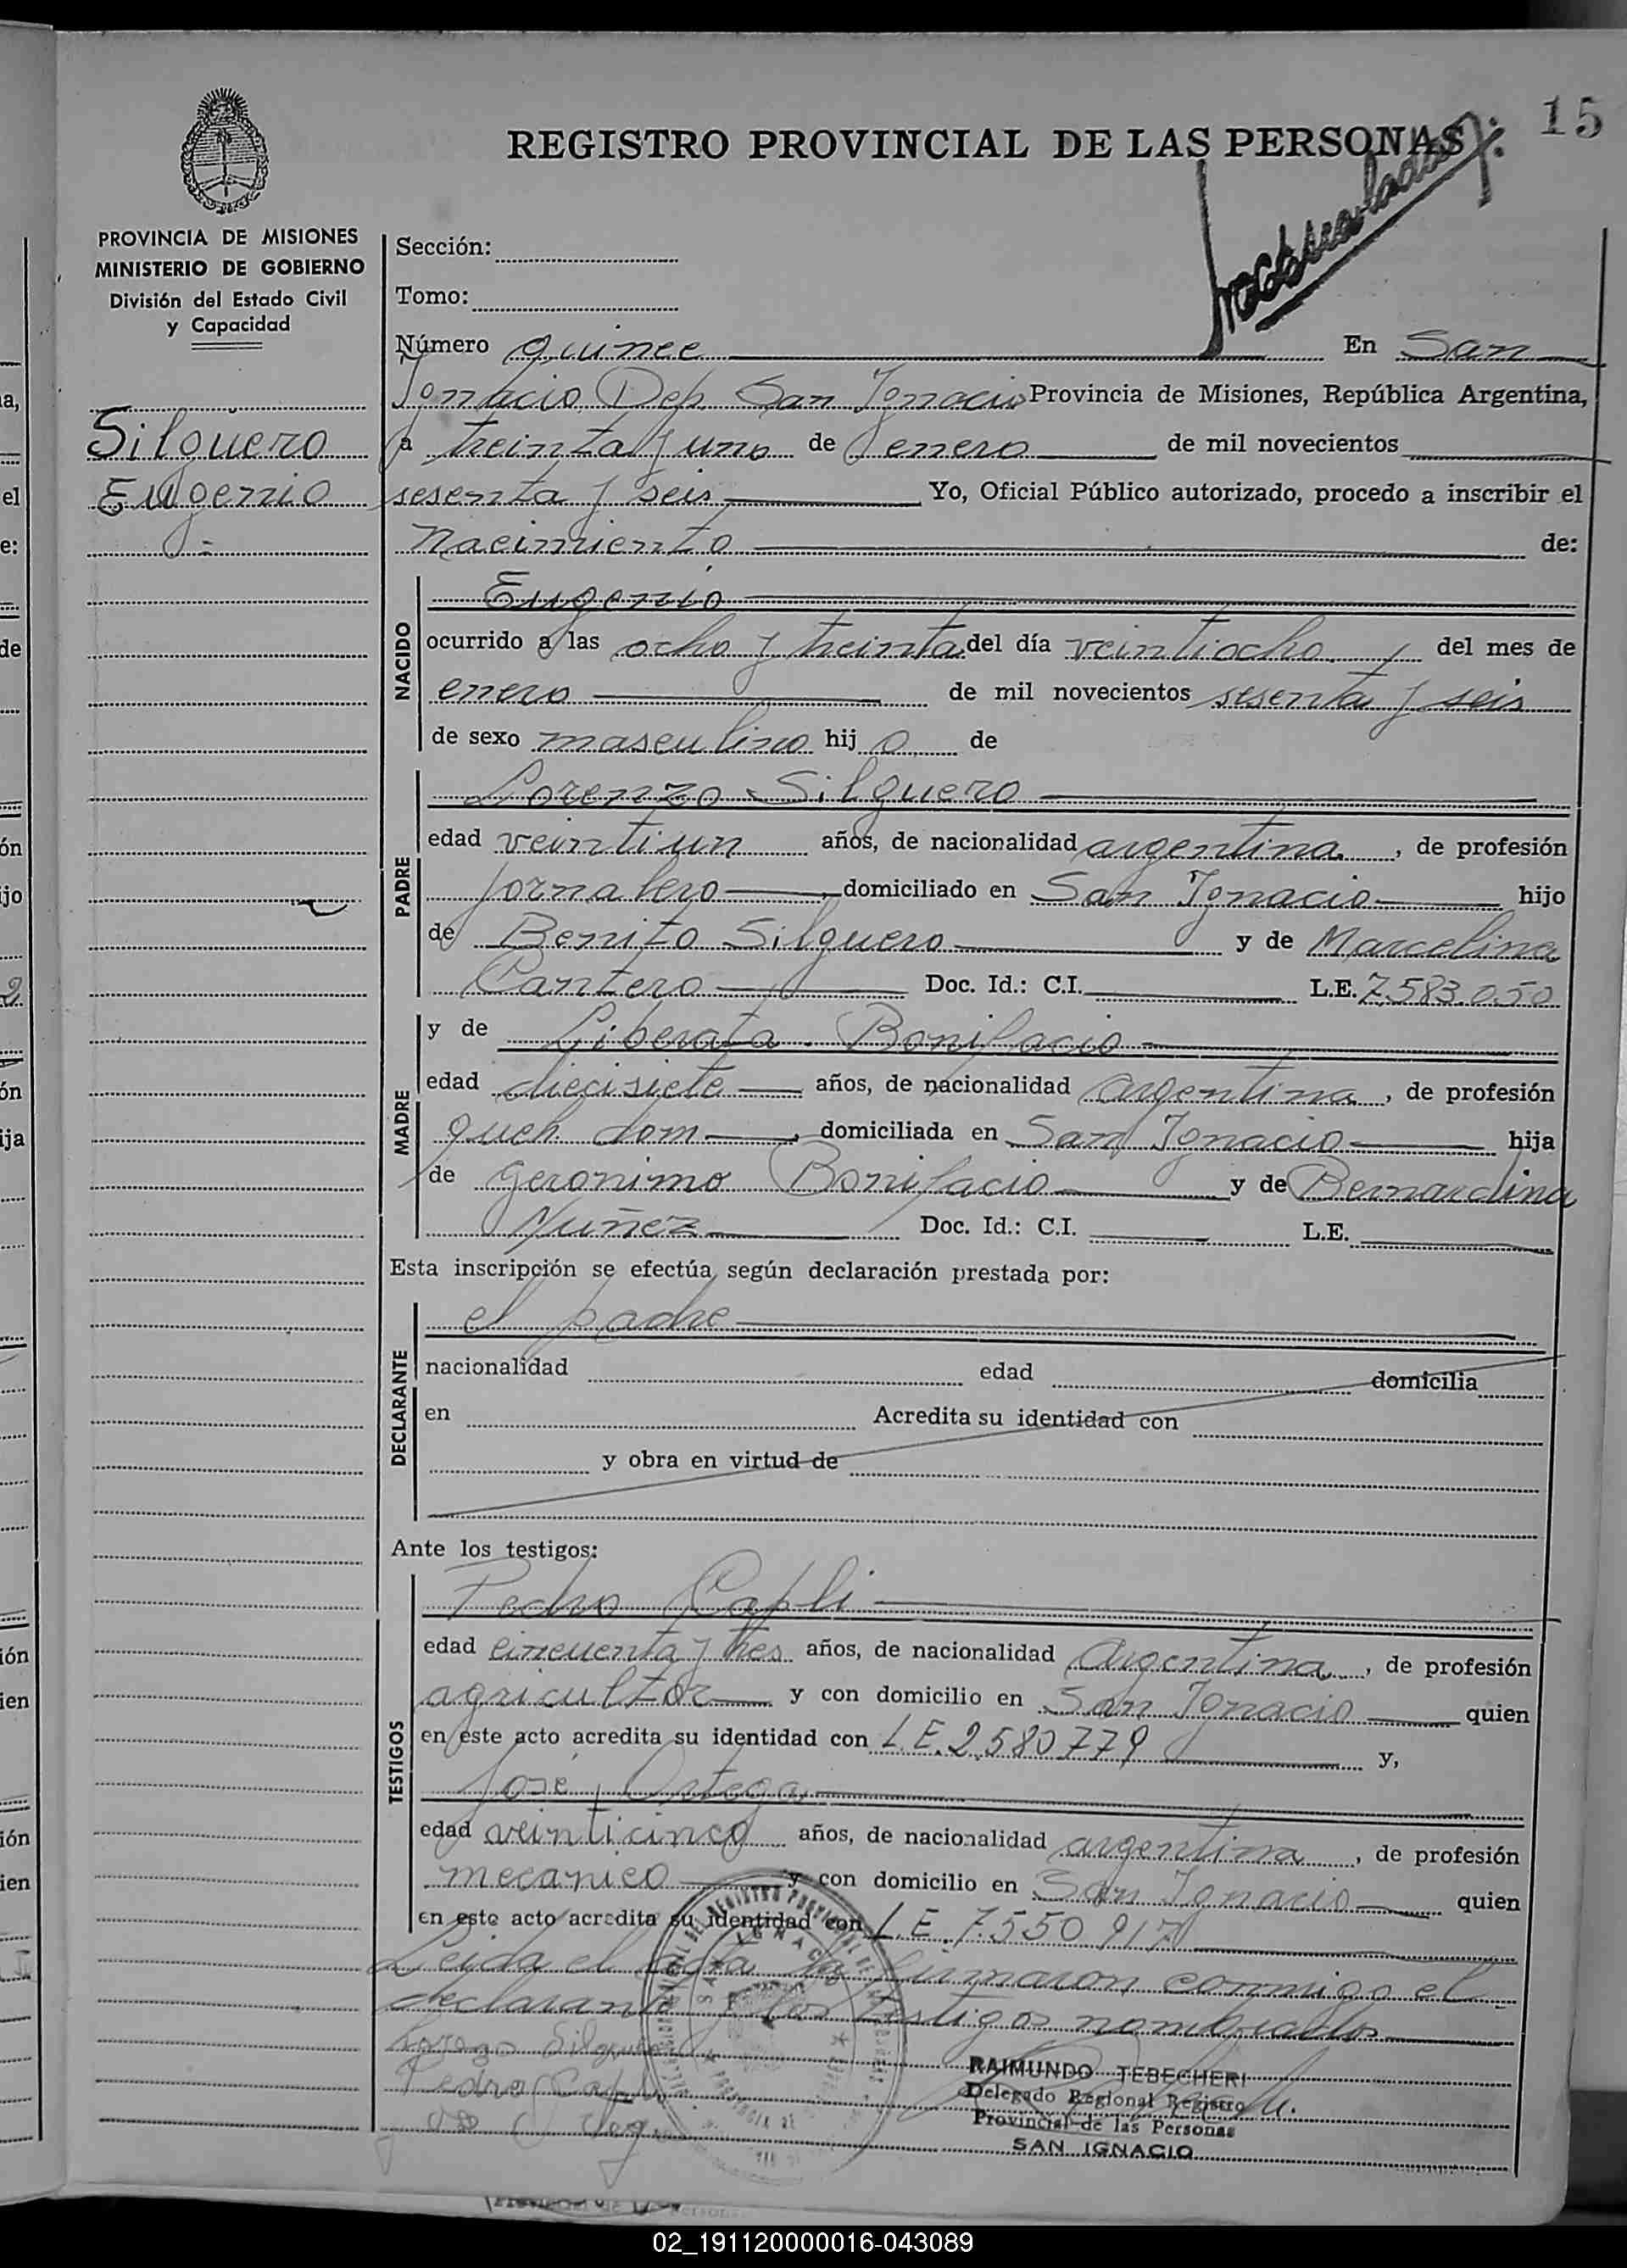 15
REGISTRO PROVINCIAL DE LAS PERSONAS
PROVINCIA DE MISIONES
MINISTERIO DE GOBIERNO
División del Estado Civil
y Capacidad
Silguero
Eugenio
Sección:
Tomo:
Número quince En San
Ignacio Dep. San Ignacio Provincia de Misiones, República Argentina,
a treinta y uno de enero de mil novecientos
sesenta y seis Yo, Oficial Público autorizado, procedo a inscribir el
nacimiento de:
NACIDO
Eugenio
ocurrido a las ocho y treinta del día veintiocho del mes de
enero de mil novecientos sesenta y seis
de sexo masculino hij o de
PADRE
Lorenzo Silguero
edad veintiun años, de nacionalidad argentina, de profesión
jornalero, domiciliado en San Ignacio hijo
de Benito Silguero y de Marcelina
Cantero Doc. Id.: C.I. L.E. 7.583.050
MADRE
y de Liberata Bonifacio
edad diecisiete años, de nacionalidad argentina, de profesión
queh. dom, domiciliada en San Ignacio hija
de Geronimo Bonifacio y de Bernardina
Nuñez Doc. Id.: C.I. L.E.
Esta inscripción se efectúa según declaración prestada por:
DECLARANTE
el padre
nacionalidad edad domicilia
en Acredita su identidad con
y obra en virtud de
Ante los testigos:
TESTIGOS
Pedro Capli
edad cincuenta y tres años, de nacionalidad Argentina, de profesión
agricultor y con domicilio en San Ignacio quien
en este acto acredita su identidad con L.E. 2.580779 y,
José Ortega
edad veinticinco años, de nacionalidad argentina, de profesión
mecanico y con domicilio en San Ignacio quien
en este acto acredita su identidad con L.E. 7.550 917
Leida el acta la firmaron conmigo el
declarante y los testigos nombrados
Lorenzo Silguero
Pedro Capli
RAIMUNDO TEBECHERI
Delegado Regional Registro
Provincial de las Personas
SAN IGNACIO
02_191120000016-043089